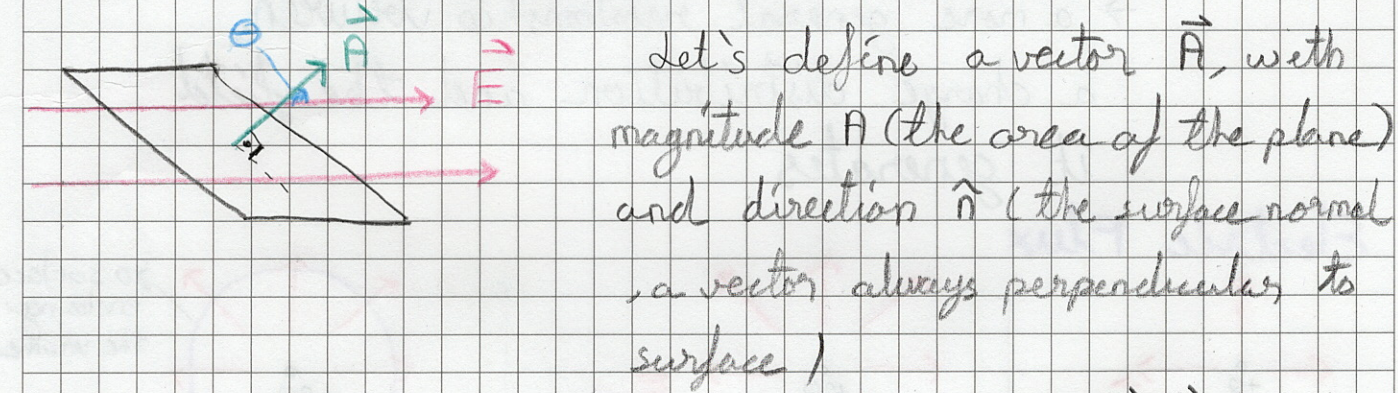 θ
A⃗
E⃗
Let's define a vector A⃗, with
magnitude A (the area of the plane)
and direction n̂ (the surface normal
, a vector always perpendicular to
surface)